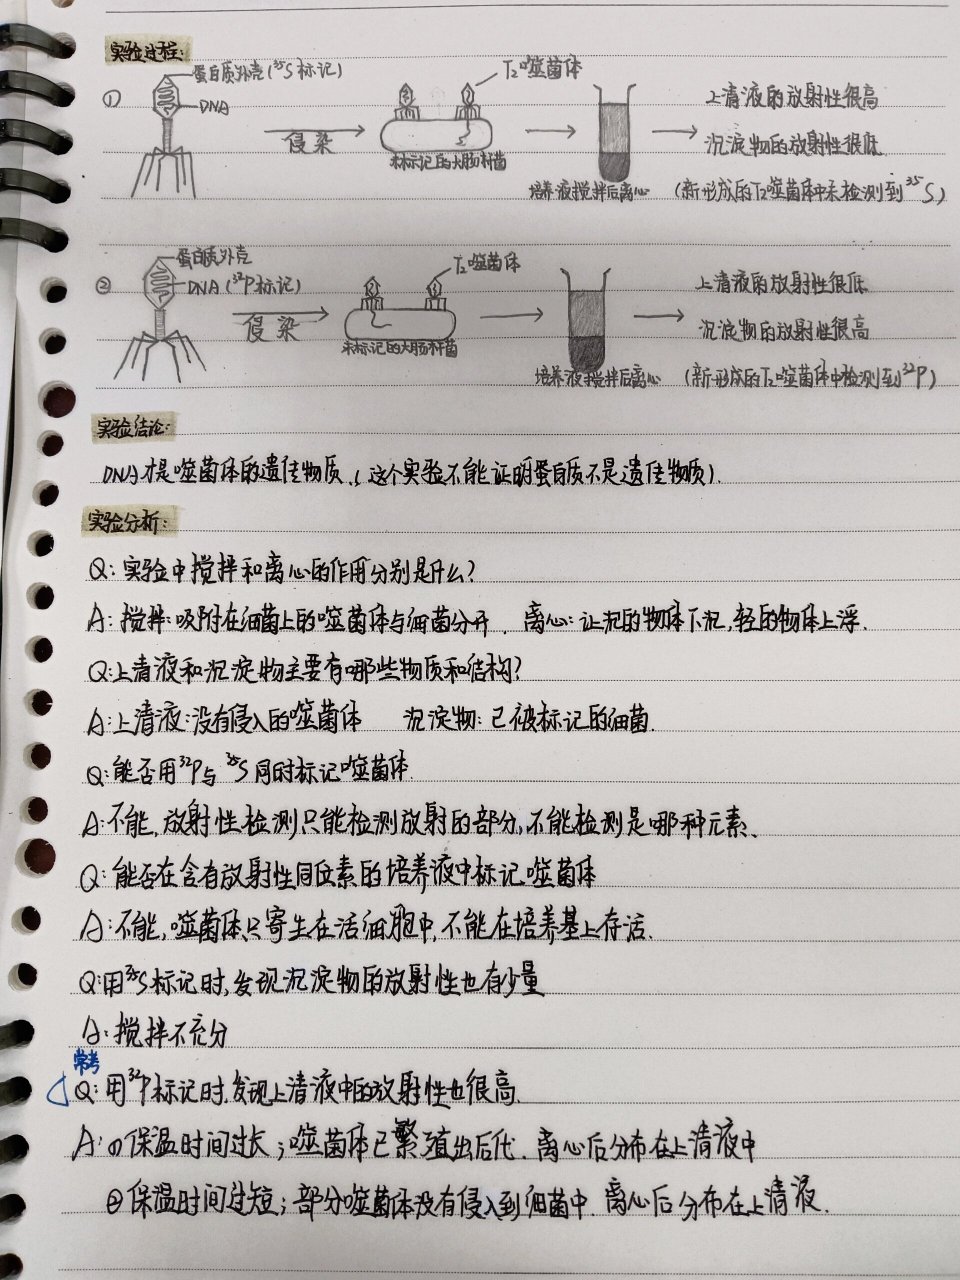 实验过程:
蛋白质外壳(³⁵S标记)
① DNA
侵染
T₂噬菌体
未标记的大肠杆菌
培养液搅拌后离心
上清液的放射性很高
沉淀物的放射性很低
(新形成的T₂噬菌体中未检测到³⁵S)
蛋白质外壳
② DNA(³²P标记)
侵染
T₂噬菌体
未标记的大肠杆菌
培养液搅拌后离心
上清液的放射性很低
沉淀物的放射性很高
(新形成的T₂噬菌体中检测到³²P)
实验结论:
DNA才是噬菌体的遗传物质.(这个实验不能证明蛋白质不是遗传物质).
实验分析:
Q:实验中搅拌和离心的作用分别是什么?
A:搅拌:吸附在细菌上的噬菌体与细菌分开. 离心:让沉的物体下沉,轻的物体上浮.
Q:上清液和沉淀物主要有哪些物质和结构?
A:上清液:没有侵入的噬菌体 沉淀物:已被标记的细菌.
Q:能否用³²P与³⁵S同时标记噬菌体.
A:不能,放射性检测只能检测放射的部分,不能检测是哪种元素、
Q:能否在含有放射性同位素的培养液中标记噬菌体
A:不能,噬菌体只寄生在活细胞中,不能在培养基上存活.
Q:用³⁵S标记时,发现沉淀物的放射性也有少量
A:搅拌不充分
常考
Q:用³²P标记时.发现上清液中的放射性也很高.
A:①保温时间过长;噬菌体已繁殖出后代.离心后分布在上清液中
②保温时间过短;部分噬菌体没有侵入到细菌中.离心后分布在上清液.